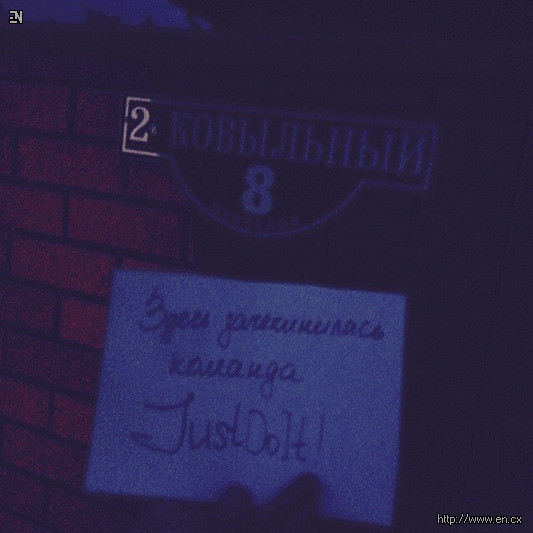 EN
2й КОВЫЛЬНЫЙ
8
переулок
Здесь зачекинилась
команда
JustDoIt!
http://www.en.cx